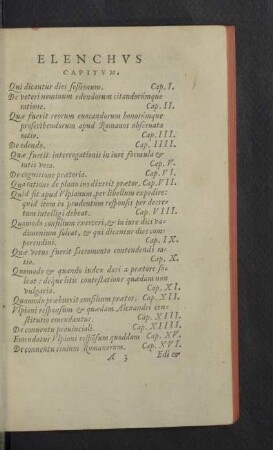 ELENCHVS
CAPITVM.
Qui dicantur dies sessionum. Cap. I.
De veteri nominum edendorum citandorúmque
ratione. Cap. II.
Quæ fuerit reorum euocandorum bonorúmque
proscribendorum apud Romanos obseruata
ratio. Cap. III.
De edendo. Cap. IIII.
Quæ fuerit interrogationis in iure formula &
Cap. V.
De cognitione prætoria. Cap. VI.
Qua ratione de plano ius dixerit prætor. Cap. VII.
Quid sit apud Vlpianum, per libellum expedire:
quid item in prudentum responsis per decre
tum intelligi debeat. Cap. VIII.
Quomodo consilium exerceri, & in iure dici va
dimonium soleat, & qui dicantur dies com
perendini. Cap. IX.
Quæ vetus fuerit sacramento contendendi ra
tio. Cap. X.
Quomodo & quando iudex dari a prætore so
leat: déque litis contestatione quædam non
vulgaria. Cap. XI.
Quomodo præbuerit consilium prætor. Cap. XII.
Vlpiani responsum & quædam Alexandri con
stitutio emendantur. Cap. XIII.
De conuentu prouinciali. Cap. XIIII.
Emendatur Vlpiani responsum quoddam Cap. XV.
De conuentu ciuium Romanorum. Cap. XVI.
A 3 Edi &